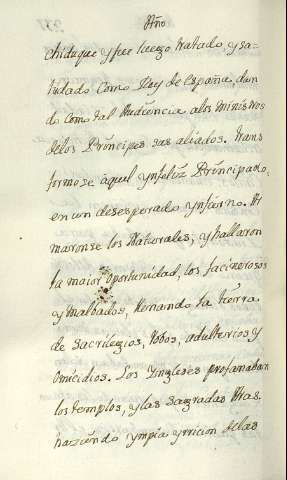 Año
chiduque y fue luego tratado, y sa-
ludado como Rey de España, dan
do como tal Audiencia a los Ministros
delos Principes sus aliados. Trans
formose aquel ynfeliz Principado,
en un desesperado ynfierno. Ar
maronse los Naturales, y hallaron
la maior oportunidad, los facinerosos
y Malbados, llenando la tierra
de sacrilegios, Robos, adulterios y
omicidios. Los Yngleses profanaban
los templos, y las sagradas Aras
haziendo ympia yrricion delas